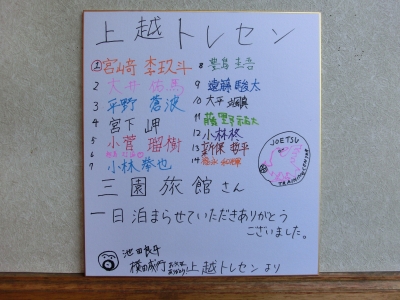 上越トレセン
① 宮﨑 李玖斗
2 大井
3 平野 蒼波
4 宮下 岬
5 小菅 瑠樹
6
7 小林 拳也
8 豊島 圭吾
9 遠藤 駿太
10 大平
11 藤野
12 小林 柊
13 新保 哲平
14
JOETSU
TRAINING CENTER
三園旅館さん
一日泊まらせていただきありがとう
ございました。
池田
横田
上越トレセンより